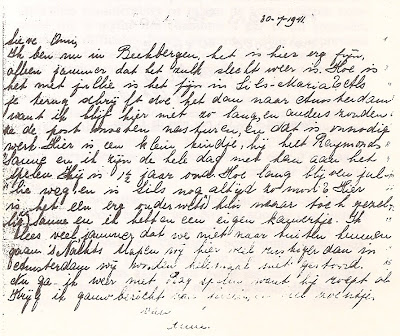 30-7-1941
Lieve Omi,
Ik ben nu in Beekbergen, het is hier erg fijn,
alleen jammer dat het zulk slecht weer is. Hoe is
het met jullie is het fijn in Sils-Maria? Als
je terug schrijft doe het dan naar Amsterdam
want ik blijf hier niet zo lang, en anders zouden
ze de post moeten nasturen, en dat is onnodig
werk. Hier is een klein kindje, hij heet Raymond
Sanne en ik zijn de hele dag met hem aan het
spelen. Hij is 1½ jaar oud. Hoe lang blijven jul-
lie weg en is Sils nog altijd zo mooi? Hier
is het een erg ouderwets huis maar toch gezel-
lig, Sanne en ik hebben een eigen kamertje. Ik
lees veel, jammer dat we niet naar buiten kunnen
gaan. 's Nachts slapen wij hier veel rustiger dan in
Amsterdam wij worden helemaal niet gestoord.
Nu ga ik weer met Ray spelen want hij roept al
Krijg ik gauw bericht van een zoentje,
van
Anne.